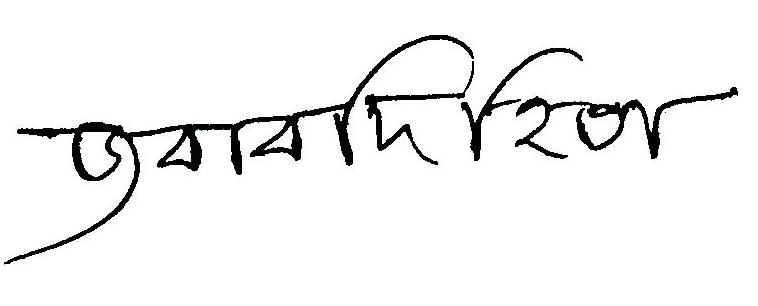 জবাবদিহিতা